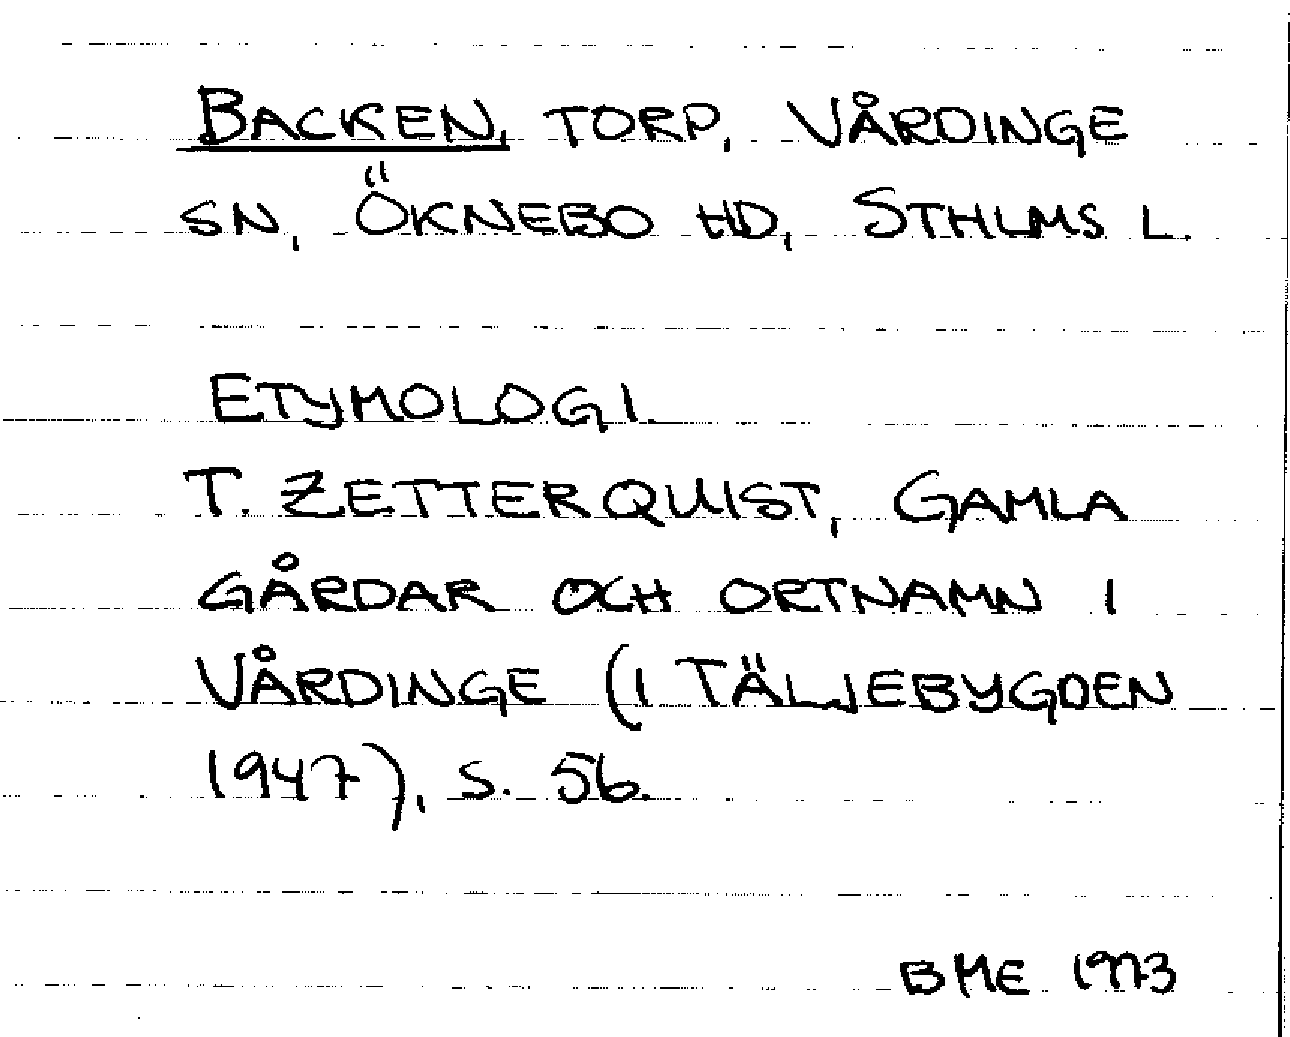 BACKEN, TORP, VÅRDINGE
SN, ÖKNEBO HD, STHLMS L.
ETYMOLOGI.
T. ZETTERQUIST, GAMLA
GÅRDAR OCH ORTNAMN I
VÅRDINGE (I TÄLJEBYGDEN
1947), S. 56.
BME 1973